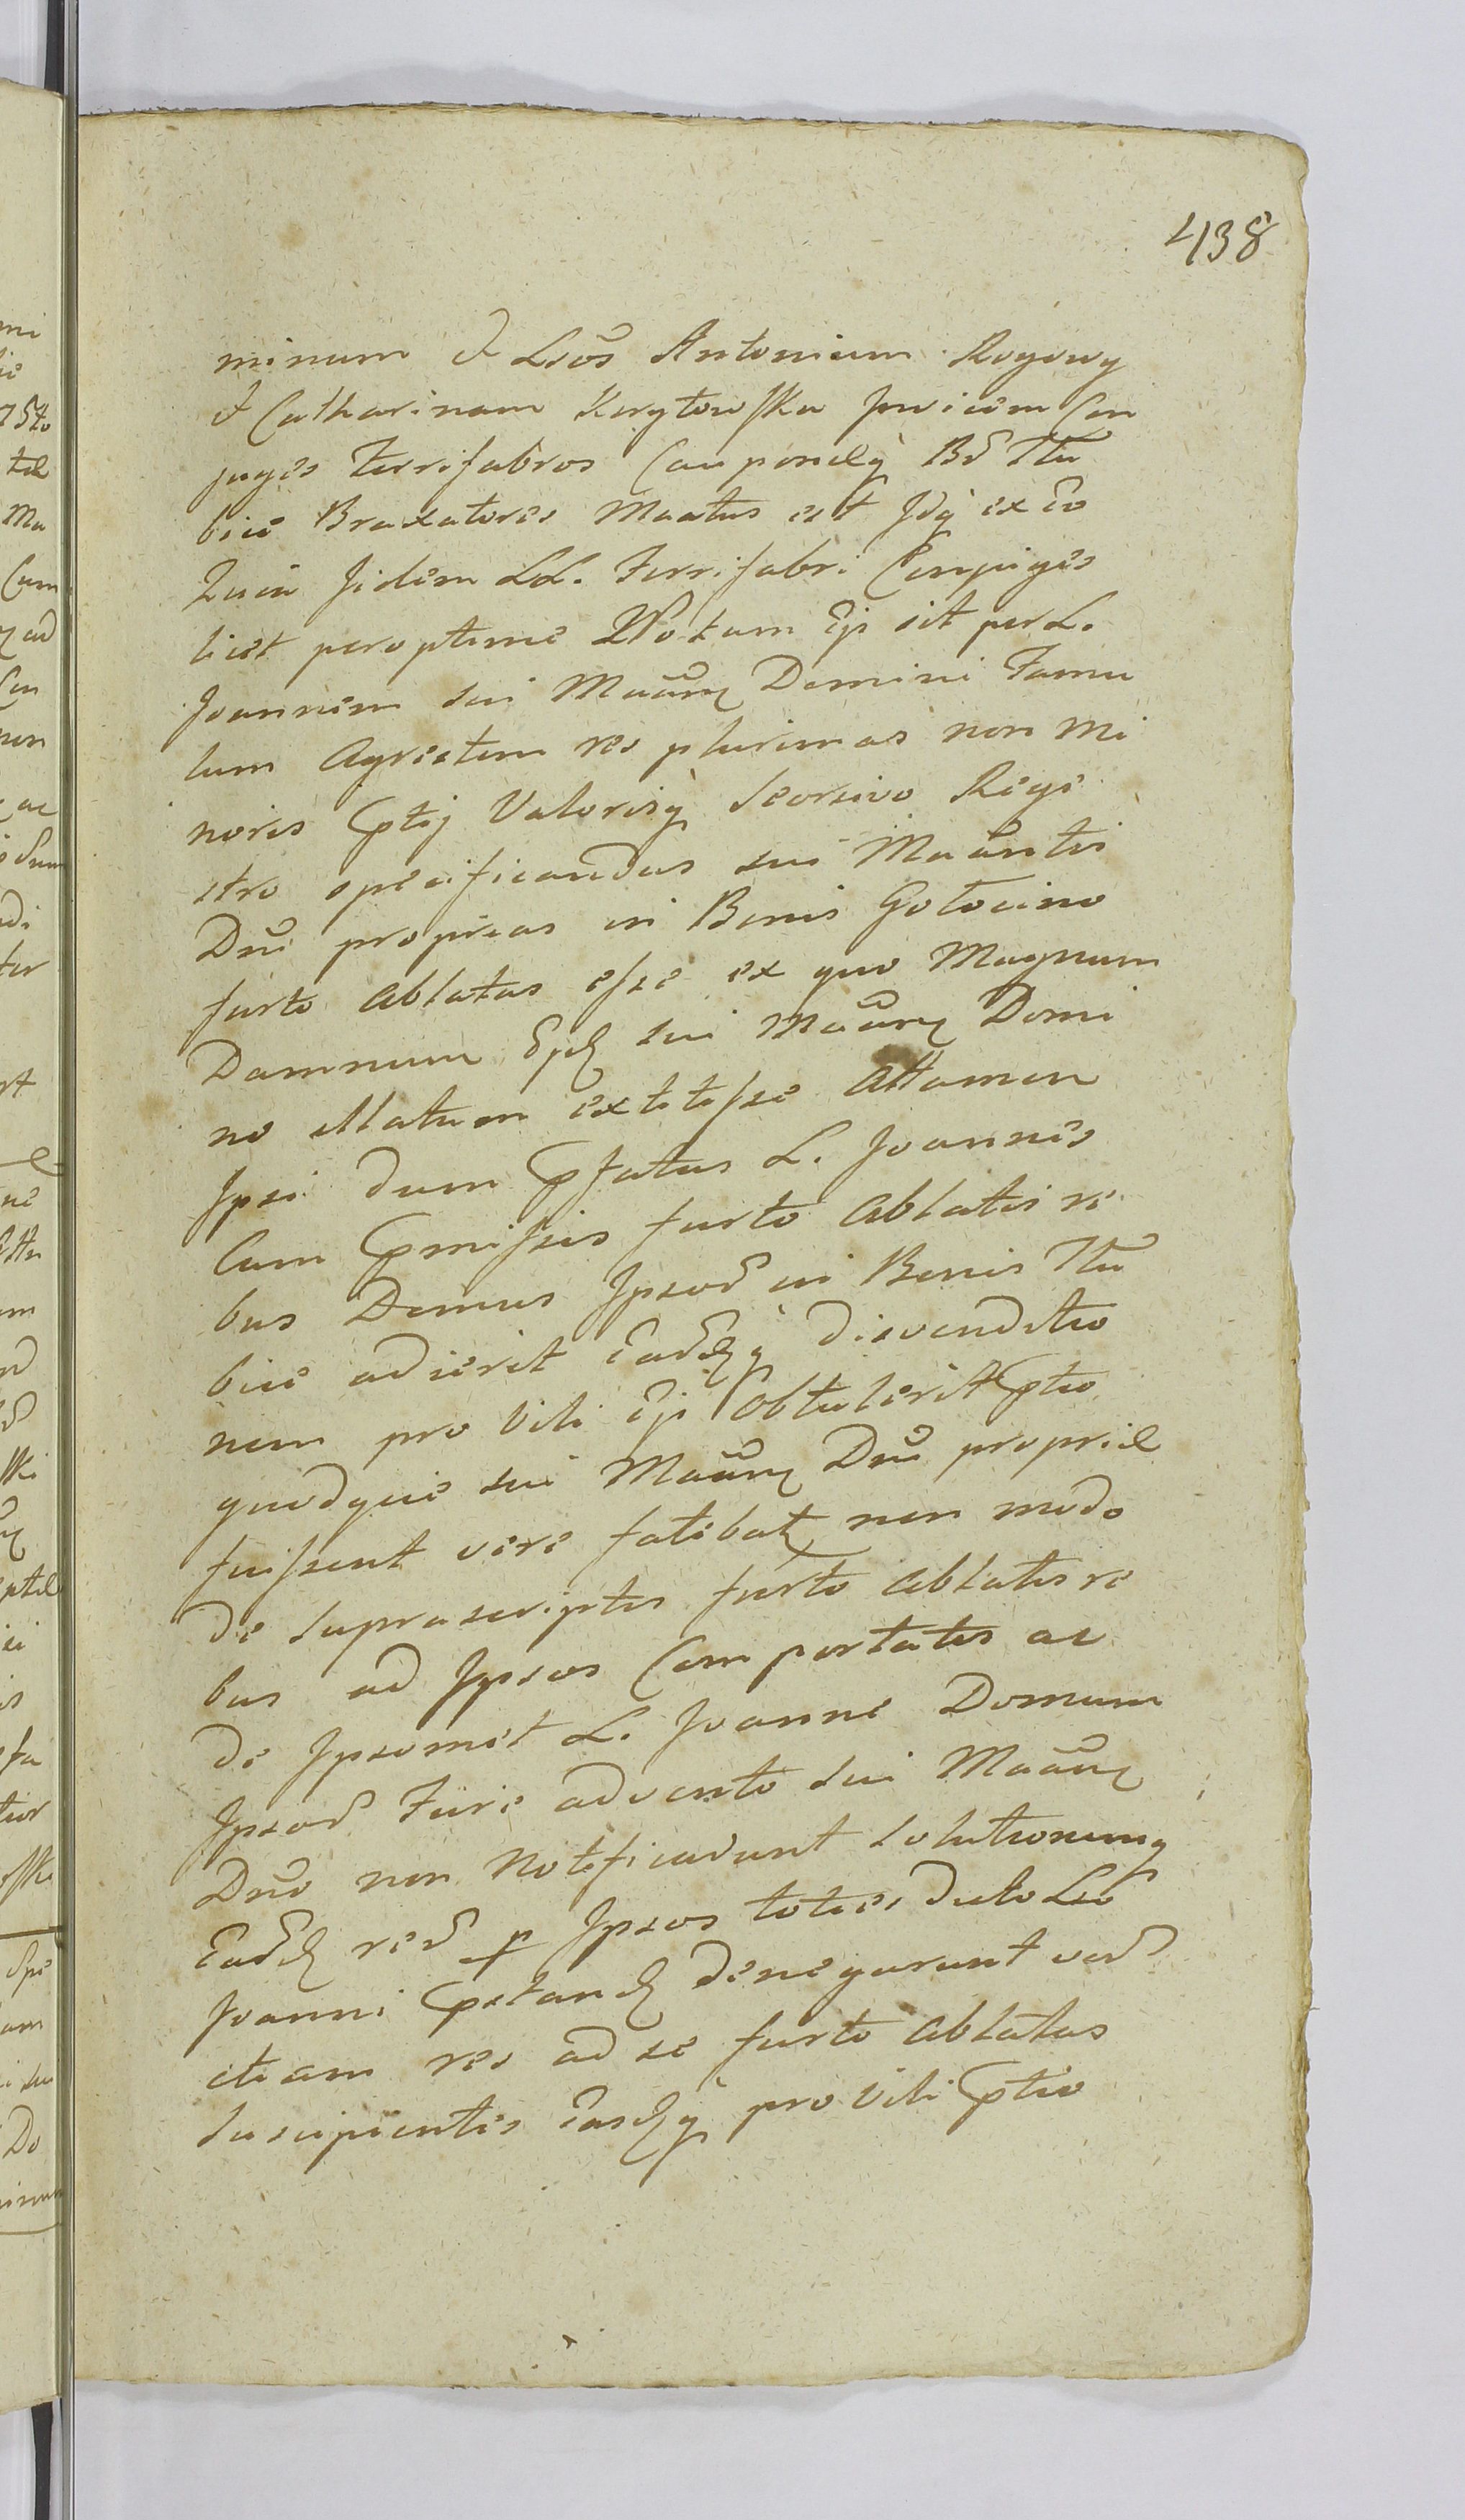 438
minum & Lsos Antonium Rogowy
& Catharinam Korytowska Invicem Con
juges Ferrifabros Cauponesq Bd Ttu
bice Braxatores Maatus est Idq ex eo
Quia Iidem LL. Ferrifabri Conjuges
licet peroptime Notum Eis sit per L.
Joannem sui Maañ Domini Famu
lum Agrestem res plurimas non mi
noris Ptij Valorisq seorsivo Regi
stro specificandas sui Maantis
Dni proprias in Bonis Gotocino
furto ablatas esse ex quo Magnum
Damnum sui Maañ Domi
no illatum extitisse attamen
Ipsi dum Pfatus L. Joannes
Cum Pmissis furto ablatis re
bus Domus Ipsor in Bonis Ttu
bice adierit Eardq divenditio
nem pro Vili Eis obtulerit Ptio
quodque sui Maañ Dni propriæ
fuissent vere fatebat non modo
de supra scriptis furto ablatis re
bus ad Ipsos Comportatis ac
de Ipsomet L. Joanne Domum
Ipsor Fure advento sui Maañ
Dno non Notificarunt solutionemq
Eard rer p Ipsos toties dicto Lso
Joanni Pstand denegarunt ver
etiam res ad se furto ablatas
suscipientes Easdq pro Vili Ptio